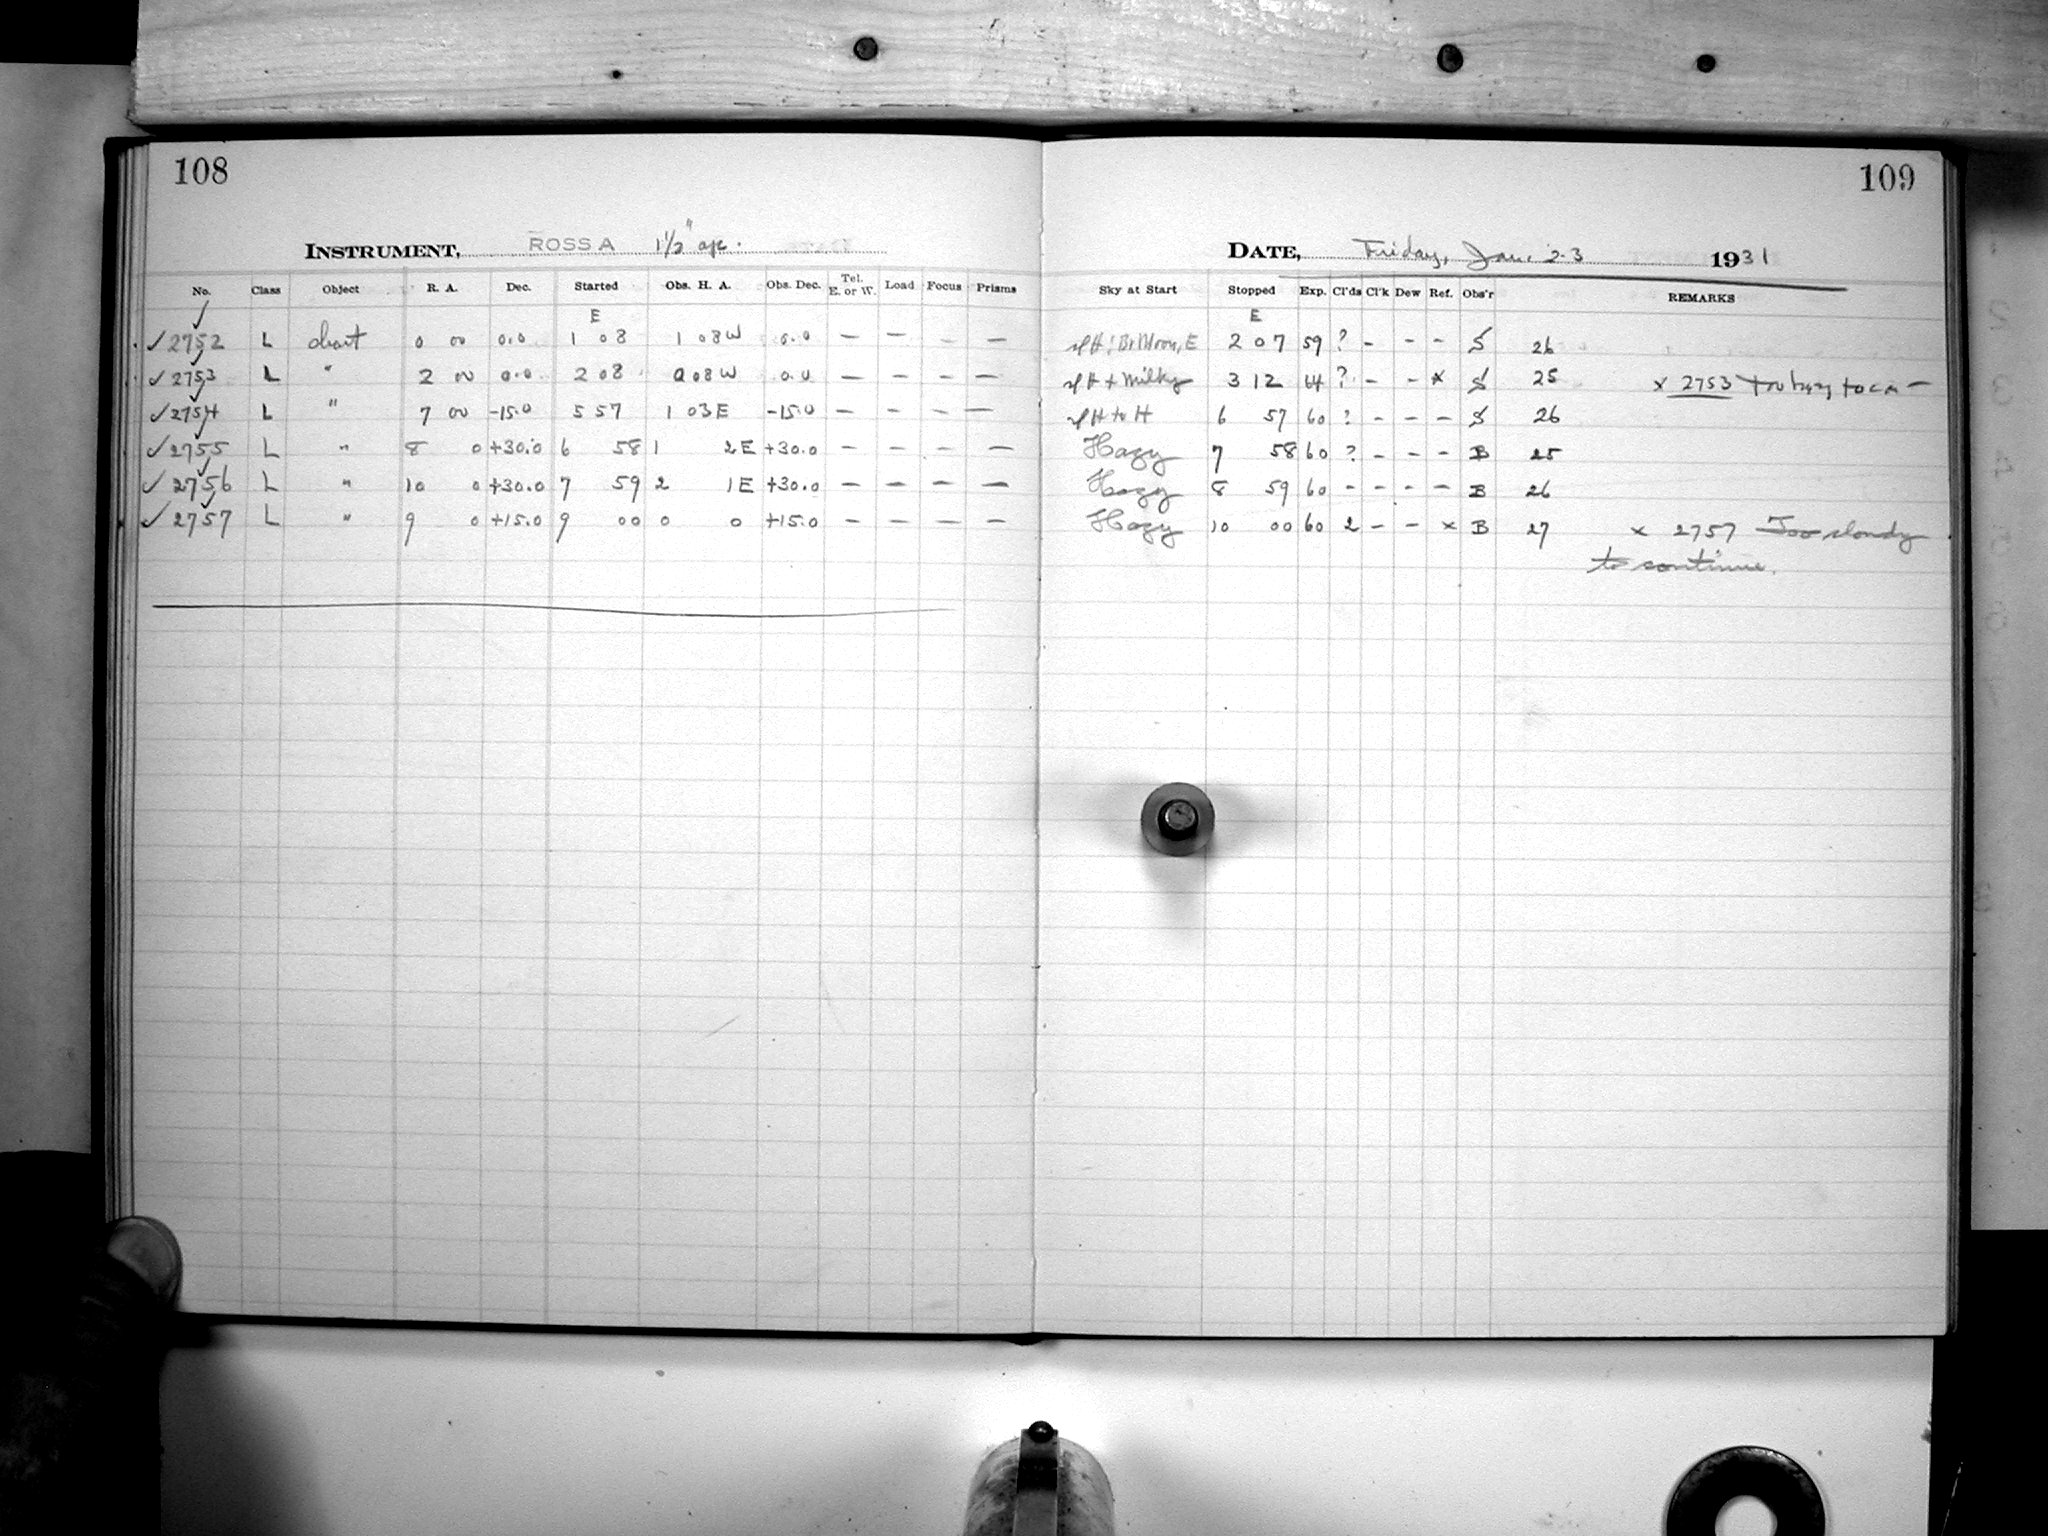 108
INSTRUMENT, ROSS A 1½" ap.
No. Class Object R. A. Dec. Started Obs. H. A. Obs. Dec. Tel. E. or W. Load Focus Prisms
E
✓ 2752 L chart 0 00 0.0 1 08 1 08 W 0.0 — — - —
✓ 2753 L " 2 00 0.0 2 08 0 08 W 0.0 — — - —
✓ 2754 L " 7 00 -15.0 5 57 1 03 E -15.0 — - — —
✓ 2755 L " 8 0 +30.0 6 58 1 2 E +30.0 — — - —
✓ 2756 L " 10 0 +30.0 7 59 2 1 E +30.0 — — — —
✓ 2757 L " 9 0 +15.0 9 00 0 0 +15.0 — — — —
109
DATE, Friday, Jan. 2-3 1931
Sky at Start Stopped Exp. Cl'ds Cl'k Dew Ref. Obs'r REMARKS
E
Moon, E 2 07 59 ? - - - S 26
+ Milky 3 12 64 ? - - x S 25 x 2753
H to H 6 57 60 ? - - - S 26
Hazy 7 58 60 ? - - - B 25
Hazy 8 59 60 - - - - B 26
Hazy 10 00 60 2 - - x B 27 x 2757 Too cloudy
to continue.